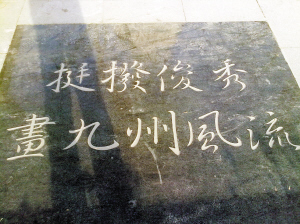 挺撥俊秀
畫九州風流